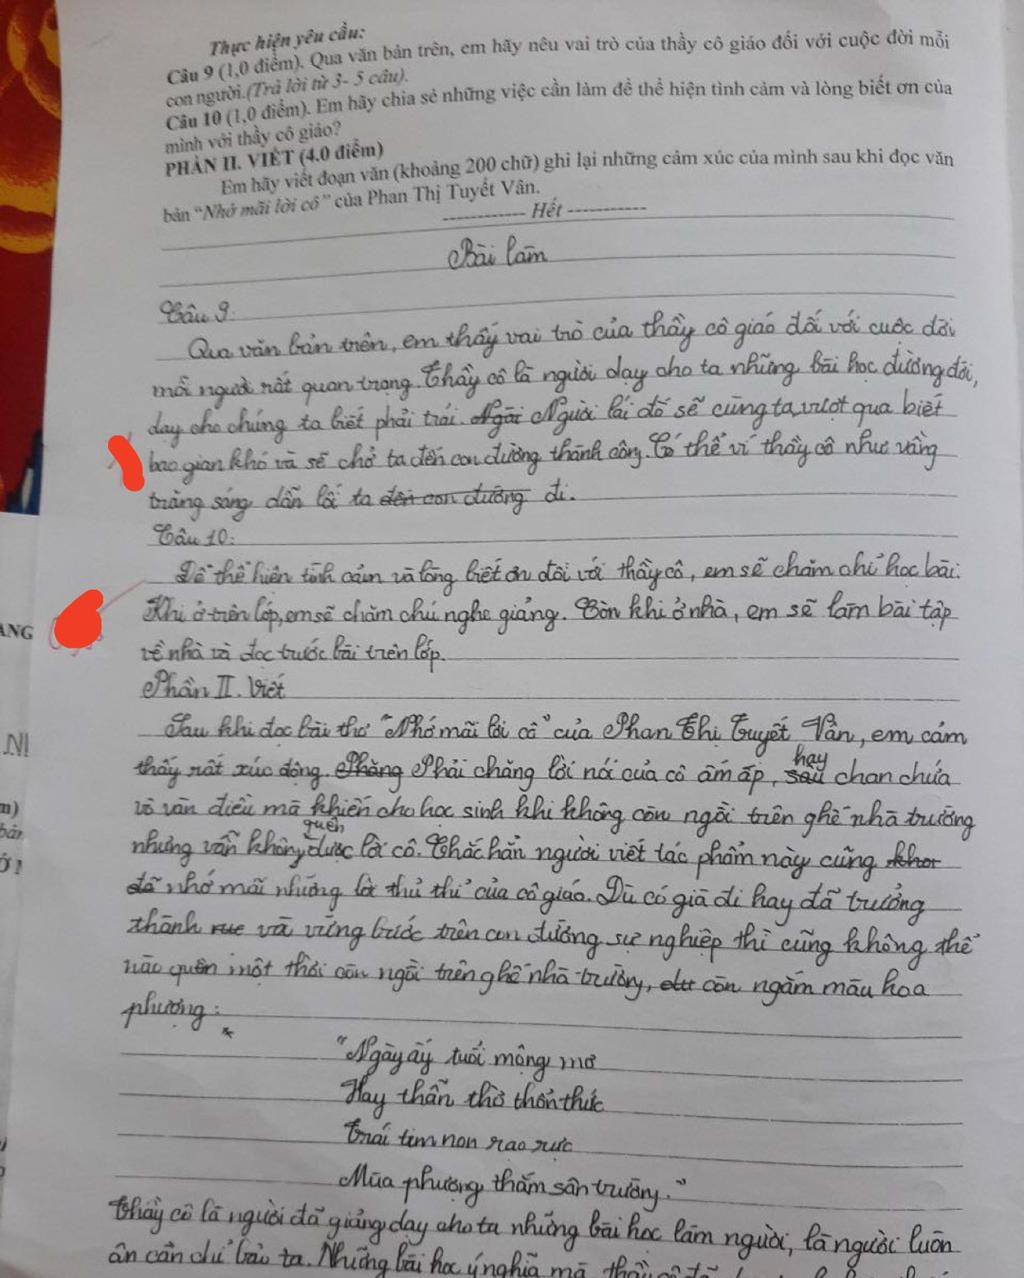 Thực hiện yêu cầu:
Câu 9 (1,0 điểm). Qua văn bản trên, em hãy nêu vai trò của thầy cô giáo đối với cuộc đời mỗi
con người.(Trả lời từ 3- 5 câu).
Câu 10 (1,0 điểm). Em hãy chia sẻ những việc cần làm để thể hiện tình cảm và lòng biết ơn của
mình với thầy cô giáo?
PHẦN II. VIẾT (4.0 điểm)
Em hãy viết đoạn văn (khoảng 200 chữ) ghi lại những cảm xúc của mình sau khi đọc văn
bản "Nhớ mãi lời cô" của Phan Thị Tuyết Vân.
------------ Hết -----------
Bài làm
Câu 9:
Qua văn bản trên, em thấy vai trò của thầy cô giáo đối với cuộc đời
mỗi người rất quan trọng. Thầy cô là người dạy cho ta những bài học đường đời,
dạy cho chúng ta biết phải trái. Người lái đò sẽ cùng ta vượt qua biết
bao gian khó và sẽ chở ta đến con đường thành công. Có thể ví thầy cô như vầng
trăng sáng dẫn lối ta đến con đường đi.
Câu 10:
Để thể hiện tình cảm và lòng biết ơn đối với thầy cô, em sẽ chăm chỉ học bài.
Khi ở trên lớp, em sẽ chăm chú nghe giảng. Còn khi ở nhà, em sẽ làm bài tập
về nhà và đọc trước bài trên lớp.
Phần II. Viết
Sau khi đọc bài thơ "Nhớ mãi lời cô" của Phan Thị Tuyết Vân, em cảm
thấy rất xúc động. Phải chăng lời nói của cô ấm áp, hay chan chứa
vô vàn điều mà khiến cho học sinh khi không còn ngồi trên ghế nhà trường
nhưng vẫn không quên được lời cô. Chắc hẳn người viết tác phẩm này cũng
đã nhớ mãi những lời thủ thỉ của cô giáo. Dù có già đi hay đã trưởng
thành và vững bước trên con đường sự nghiệp thì cũng không thể
nào quên một thời còn ngồi trên ghế nhà trường, còn ngắm màu hoa
phượng:
"Ngày ấy tuổi mộng mơ
Hay thẫn thờ thổn thức
Trái tim non rạo rực
Mùa phượng thắm sân trường."
Thầy cô là người đã giảng dạy cho ta những bài học làm người, là người luôn
ân cần chỉ bảo ta. Những bài học ý nghĩa mà thầy cô
ANG
NI
m)
bản
Ở!